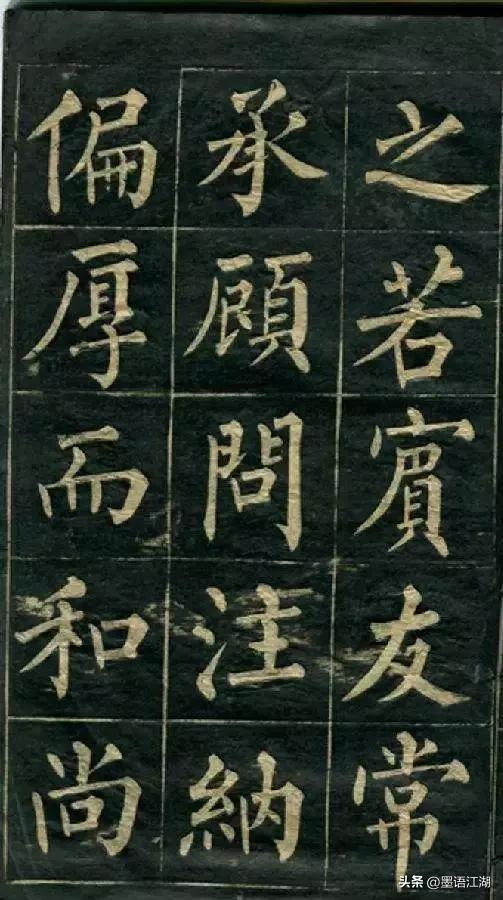 之若賓友常
承顧問注納
偏厚而和尚
头条 @墨语江湖